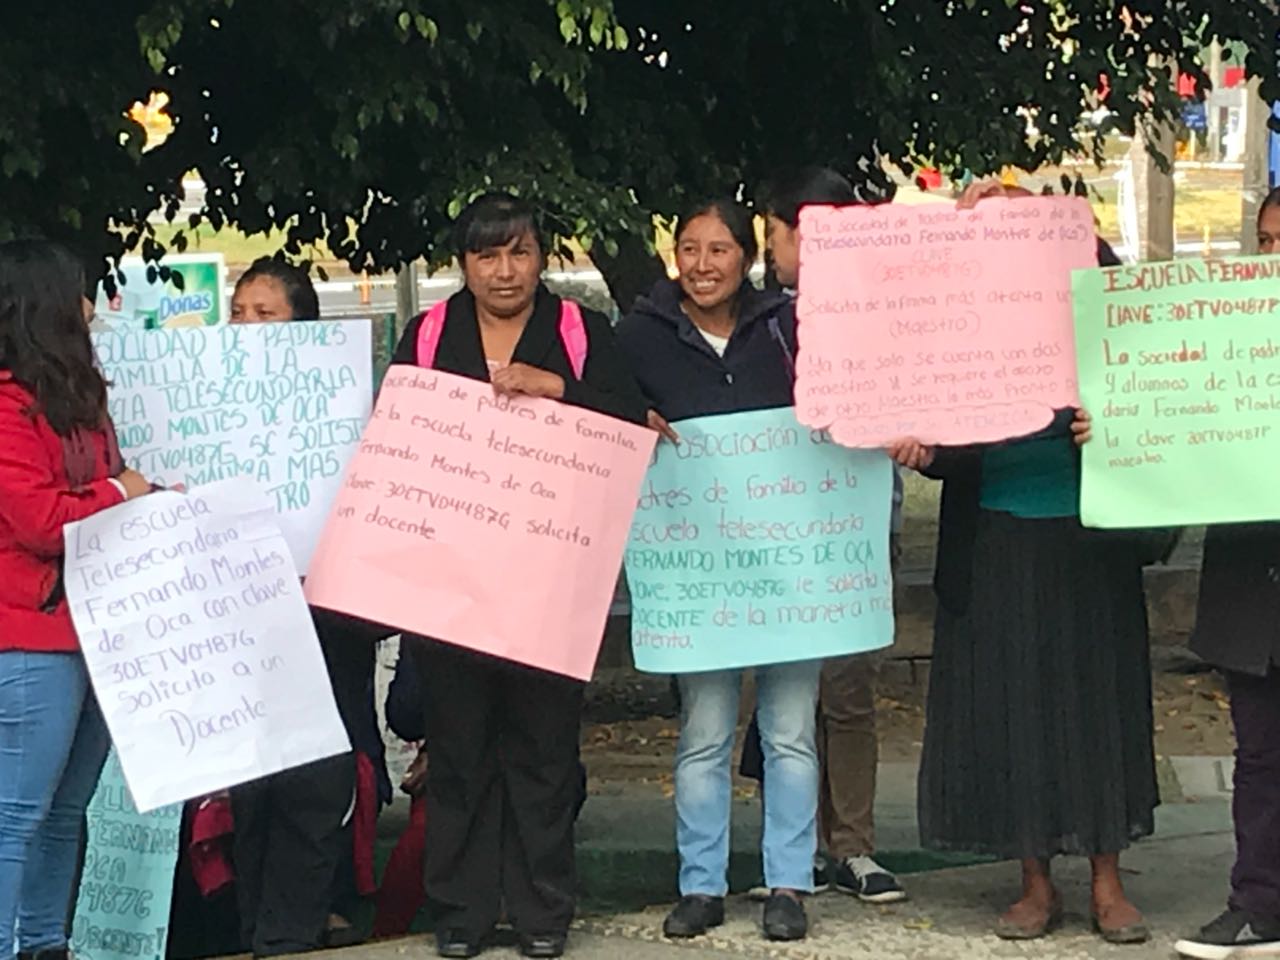 Donas
SOCIEDAD DE PADRES
FAMILIA DE LA
TELESECUNDARIA
MONTES DE OCA
SE SOLISI
MAS
La escuela
Telesecundaria
Fernando Montes
de Oca con clave
30ETV0487G
solicita a un
Docente
FERNAN
OCA
0487G
URGENTE!
sociedad de padres de familia
de la escuela telesecundaria
Fernando Montes de Oca
clave: 30ETV04487G solicita
un docente
asociación de
padres de familia de la
escuela telesecundaria
FERNANDO MONTES DE OCA
clave: 30ETV0487G le solicita u
DOCENTE de la manera m
atenta.
"La sociedad de Padres de familia de la
(Telesecundaria Fernando Montes de Oca)
CLAVE
(30ETV0487G)
Solicita de la forma más atenta u
(Maestro)
Ya que solo se cuenta con dos
maestros y se requiere el apoyo
de otro Maestro lo más Pronto p
ATENCIÓN
ESCUELA FERNAN
CLAVE: 30ETV0487P
La sociedad de padr
y alumnos de la e
daria Fernando Monte
la clave 30ETV0487P
maestro.